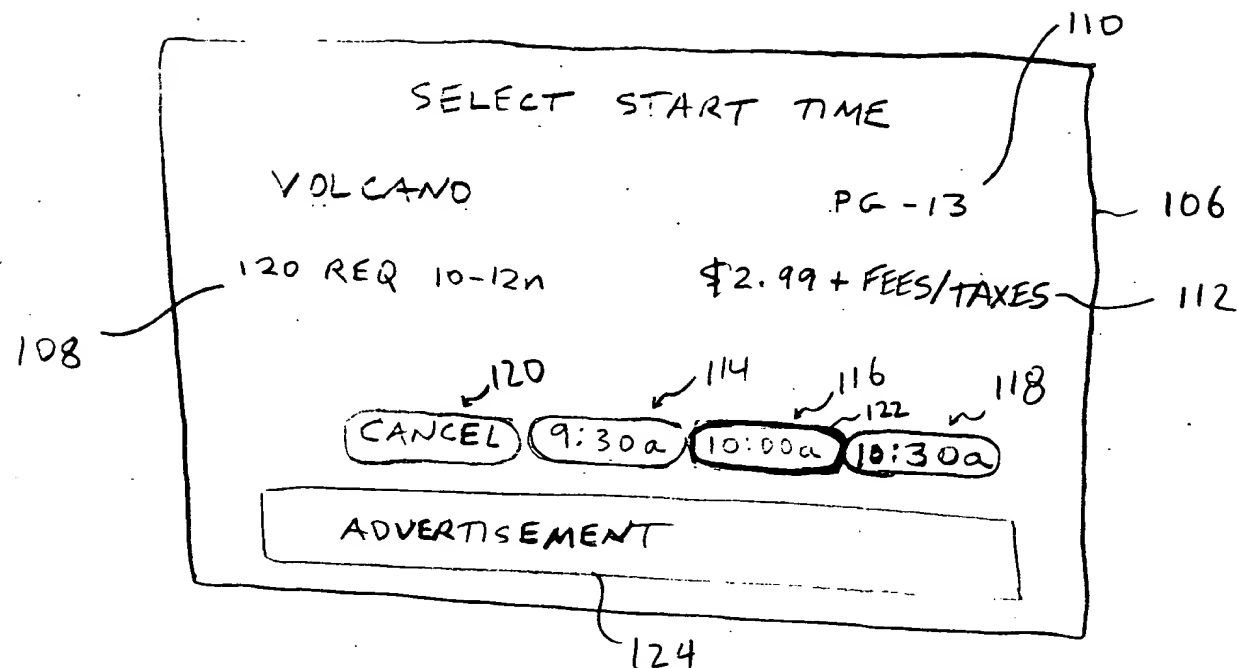 110
SELECT START TIME
VOLCANO PG-13
106
120 REQ 10-12n $2.99 + FEES/TAXES
112
108
120 114 116 118
122
CANCEL 9:30a 10:00a 10:30a
ADVERTISEMENT
124